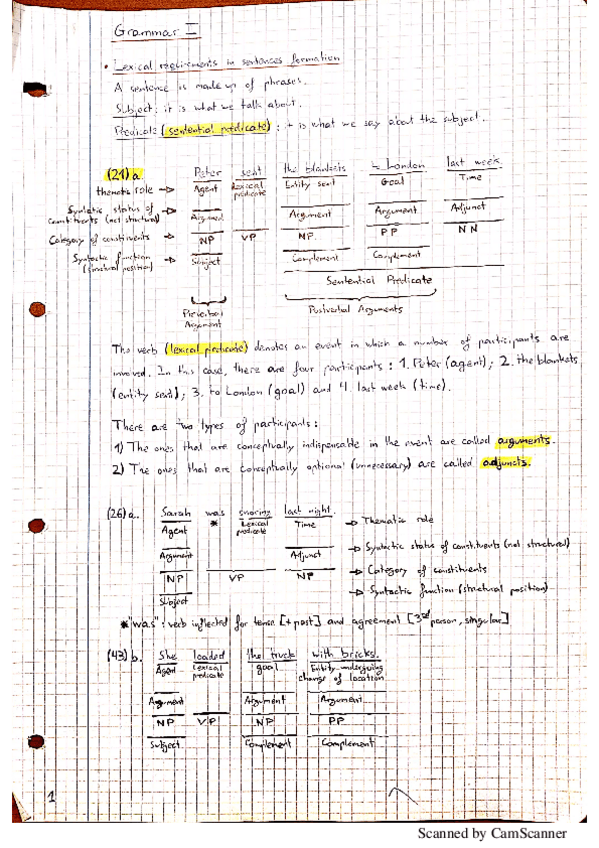 Grammar I
• Lexical requirements in sentences formation
A sentence is made up of phrases.
Subject: it is what we talk about.
Predicate (sentential predicate): it is what we say about the subject.
(21) a. Peter sent the blankets to London last week
thematic role → Agent Lexical predicate Entity sent Goal Time
Syntactic status of constituents (not structural) → Argument Argument Argument Adjunct
Category of constituents → NP VP NP PP NN
Syntactic function (structural position) → Subject Complement Complement
Sentential Predicate
Preverbal Argument Postverbal Arguments
The verb (lexical predicate) denotes an event in which a number of participants are
involved. In this case, there are four participants: 1. Peter (agent); 2. the blankets
(entity sent); 3. to London (goal) and 4. last week (time).
There are two types of participants:
1) The ones that are conceptually indispensable in the event are called arguments.
2) The ones that are conceptually optional (unnecessary) are called adjuncts.
(26) a. Sarah was snoring last night.
Agent * Lexical predicate Time → Thematic role
Argument Adjunct → Syntactic status of constituents (not structural)
NP VP NP → Category of constituents
Subject → Syntactic function (structural position)
*"was": verb inflected for tense [+past] and agreement [3rd person, singular]
(43) b. She loaded the truck with bricks.
Agent Lexical predicate goal Entity undergoing change of location
Argument Argument Argument
NP VP NP PP
Subject Complement Complement
1
Scanned by CamScanner